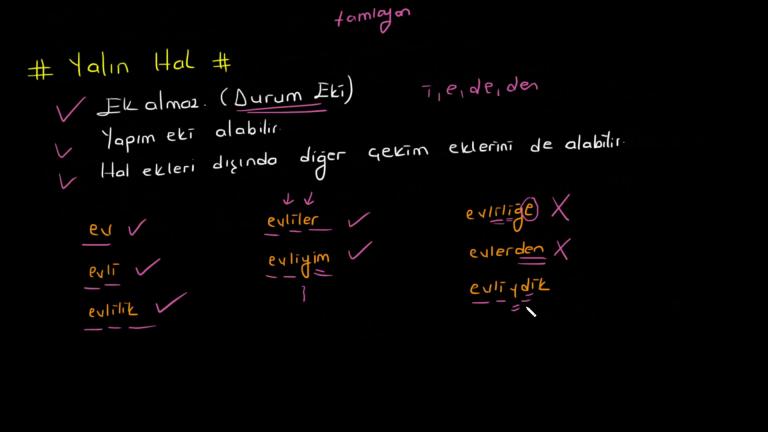 tamlayan
# Yalın Hal #
Ek almaz. (Durum Eki)
i, e, de, den
Yapım eki alabilir.
Hal ekleri dışında diğer çekim eklerini de alabilir.
ev
evli
evlilik
evliler
evliyim
evliliğe X
evlerden X
evliydik